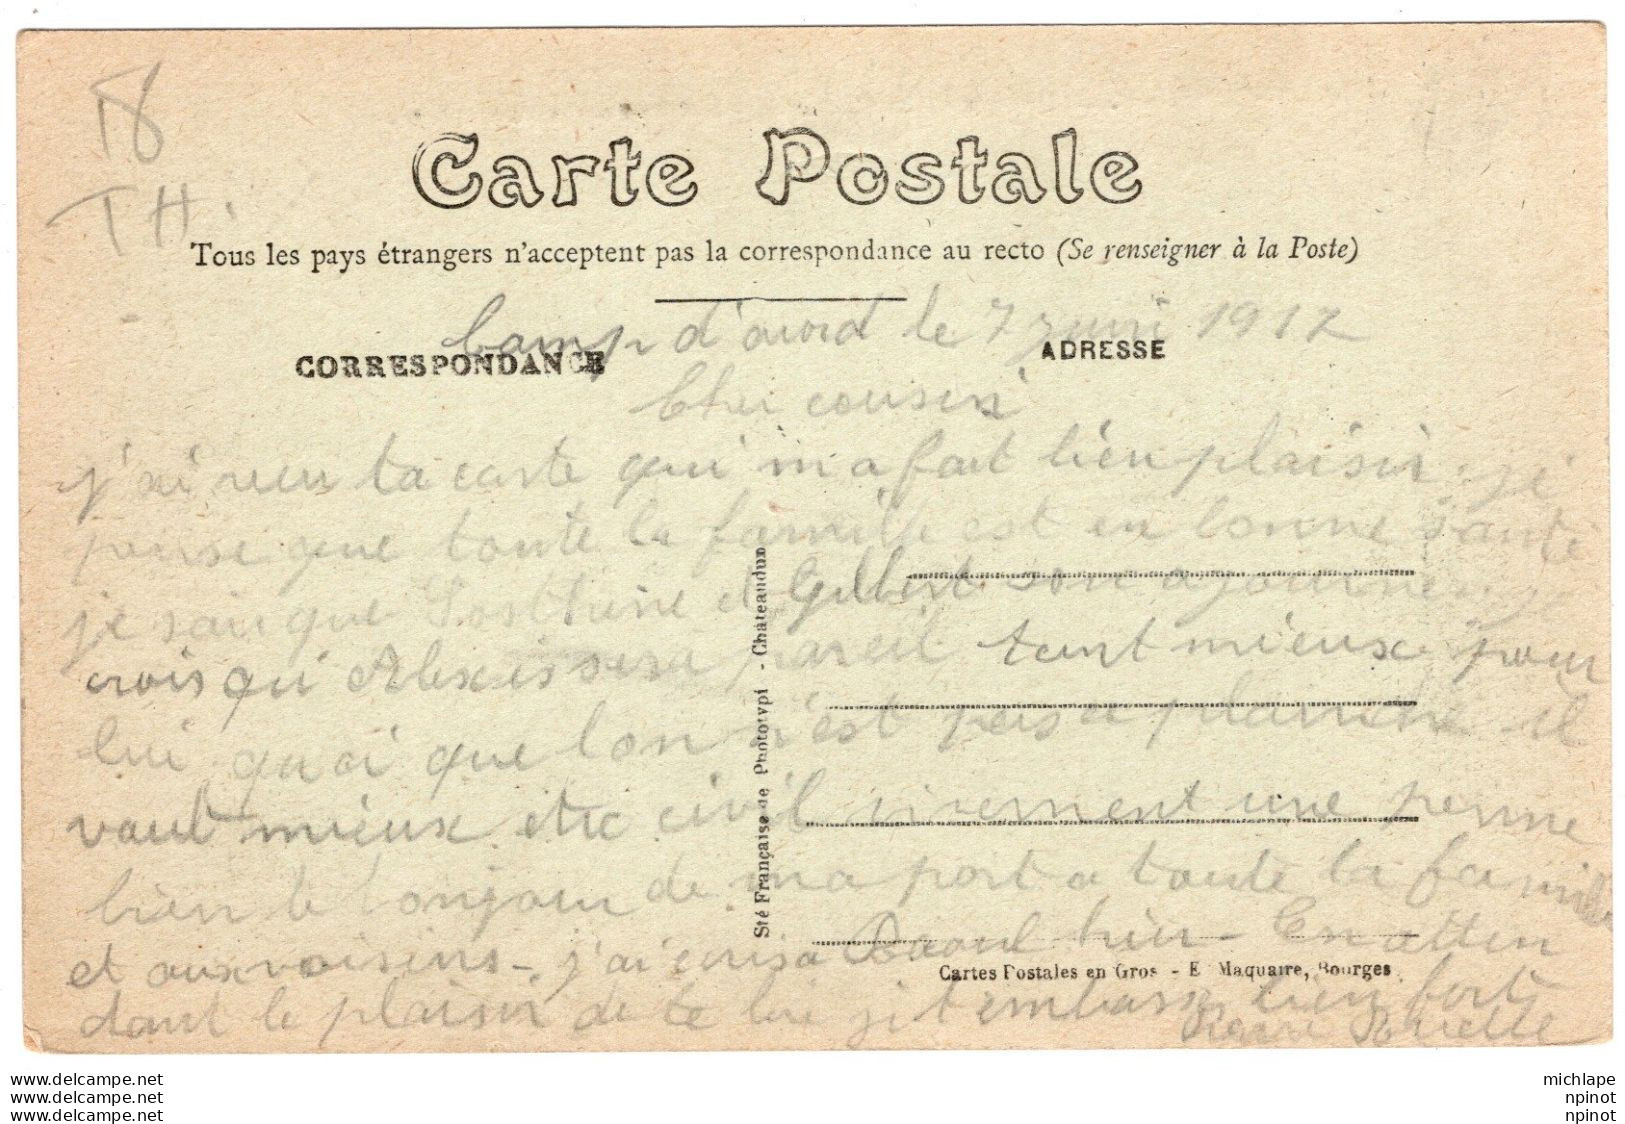 18
TH.
Carte Postale
Tous les pays étrangers n'acceptent pas la correspondance au recto (Se renseigner à la Poste)
Camp d'avord le 7 juin 1917
CORRESPONDANCE
ADRESSE
Cher cousin
j'ai reçu ta carte qui m'a fait bien plaisir. je
pense que toute la famille est en bonne santé
je sais que et Gilbert son ajourné je
crois qu'Alexis sera pareil tant mieux pour
lui quoi que lon n'est pas a plaindre il
vaut mieux etre civil surement une
bien le bonjour de ma port a toute la famille
et aux voisins - j'ai écris a Raoul hier - En atten
dant le plaisir de te lire je t'embrasse bien fort
Pierre
Sté Française de Phototypi - Châteaudun
Cartes Postales en Gros - E. Maquaire, Bourges
www.delcampe.net
www.delcampe.net
www.delcampe.net
michlape
npinot
npinot